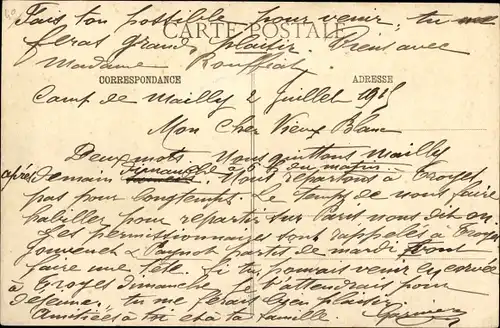 Fais ton possible pour venir, tu me
feras grand plaisir. Viens avec
Madame
CARTE POSTALE
CORRESPONDANCE
ADRESSE
Camp de Mailly 2 Juillet 1915
Mon Cher Vieux Blanc
Deux mots. Nous quittons Mailly
après demain dimanche à du matin. Nous repartons à Troyes
pas pour longtemps. Le temps de nous faire
habiller pour repartir sur Paris nous dit on.
Les permissionnaires sont rappelés à Troyes
partis de mardi
faire une tête. Si tu pouvais venir
à Troyes dimanche. Je t'attendrai pour
déjeuner, tu me ferais bien plaisir
Amitiés à toi et à ta famille.